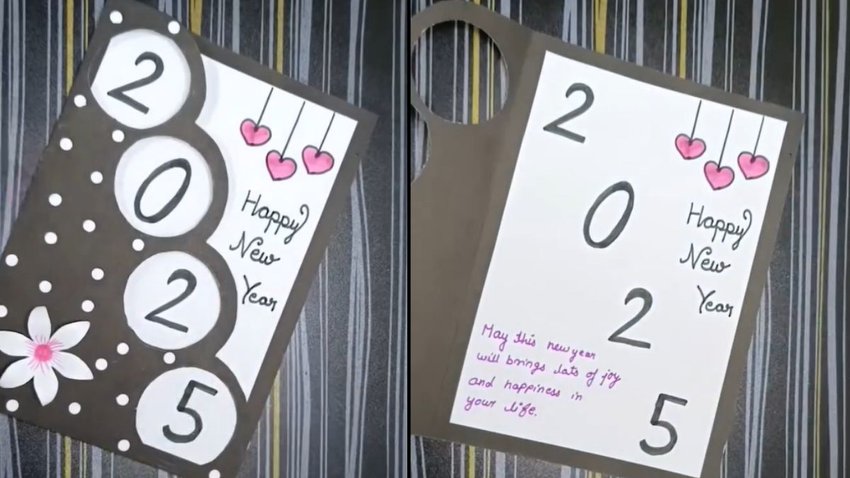 2
0
2
5
Happy
New
Year
2
0
2
5
Happy
New
Year
May this new year
will brings lots of joy
and happiness in
your life.